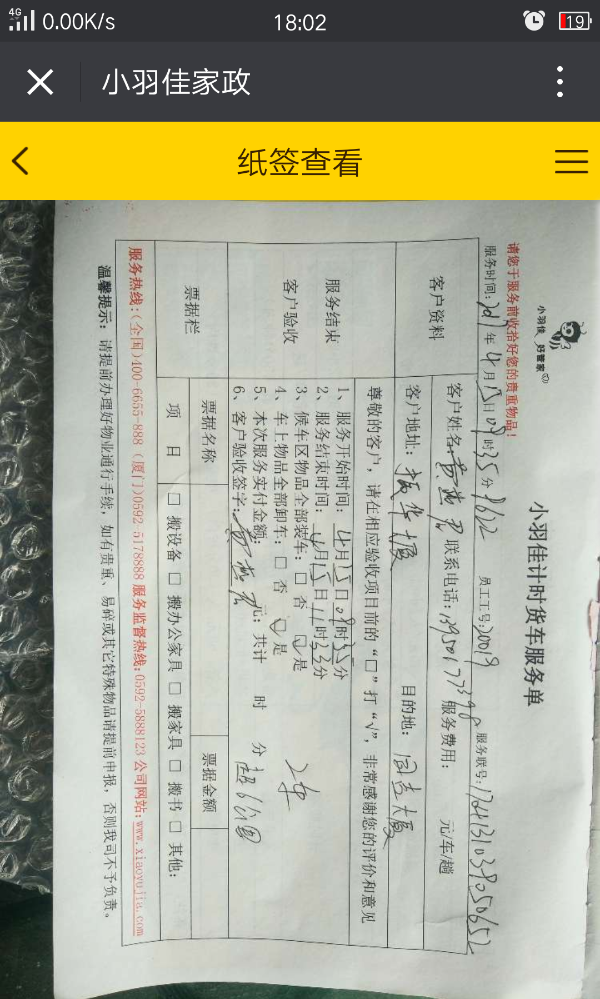 4G 0.00K/s 18:02 19
小羽佳家政
纸签查看
小羽佳 好管家
小羽佳计时货车服务单
请您于服务前收拾好您的贵重物品!
服务时间: 2017年4月15日09时35分 员工工号: 20019 服务联号:
客户资料
客户姓名: 联系电话: 服务费用: 元/车/趟
客户地址: 振华大厦 目的地: 同吉大厦
服务结束
客户验收
尊敬的客户, 请在相应验收项目前的 “□” 打 “√”, 非常感谢您的评价和意见
1、服务开始时间: 4月15日09时35分
2、服务结束时间: 4月15日11时33分
3、候车区物品全部装车: □ 否 □ 是
4、车上物品全部卸车: □ 否 □ 是
5、本次服务实付金额: 元; 共计 时 分
6、客户验收签字:
票据栏
票据名称 票据金额
项 目 □ 搬设备 □ 搬办公家具 □ 搬家具 □ 搬书 □ 其他:
服务热线: (全国)400-6655-888 (厦门)0592-5178888 服务监督热线: 0592-5888123 公司网站: www.xiaoyujia.com
温馨提示: 请提前办理好物业通行手续, 如有贵重、易碎或其它特殊物品请提前申报, 否则我司不予负责。